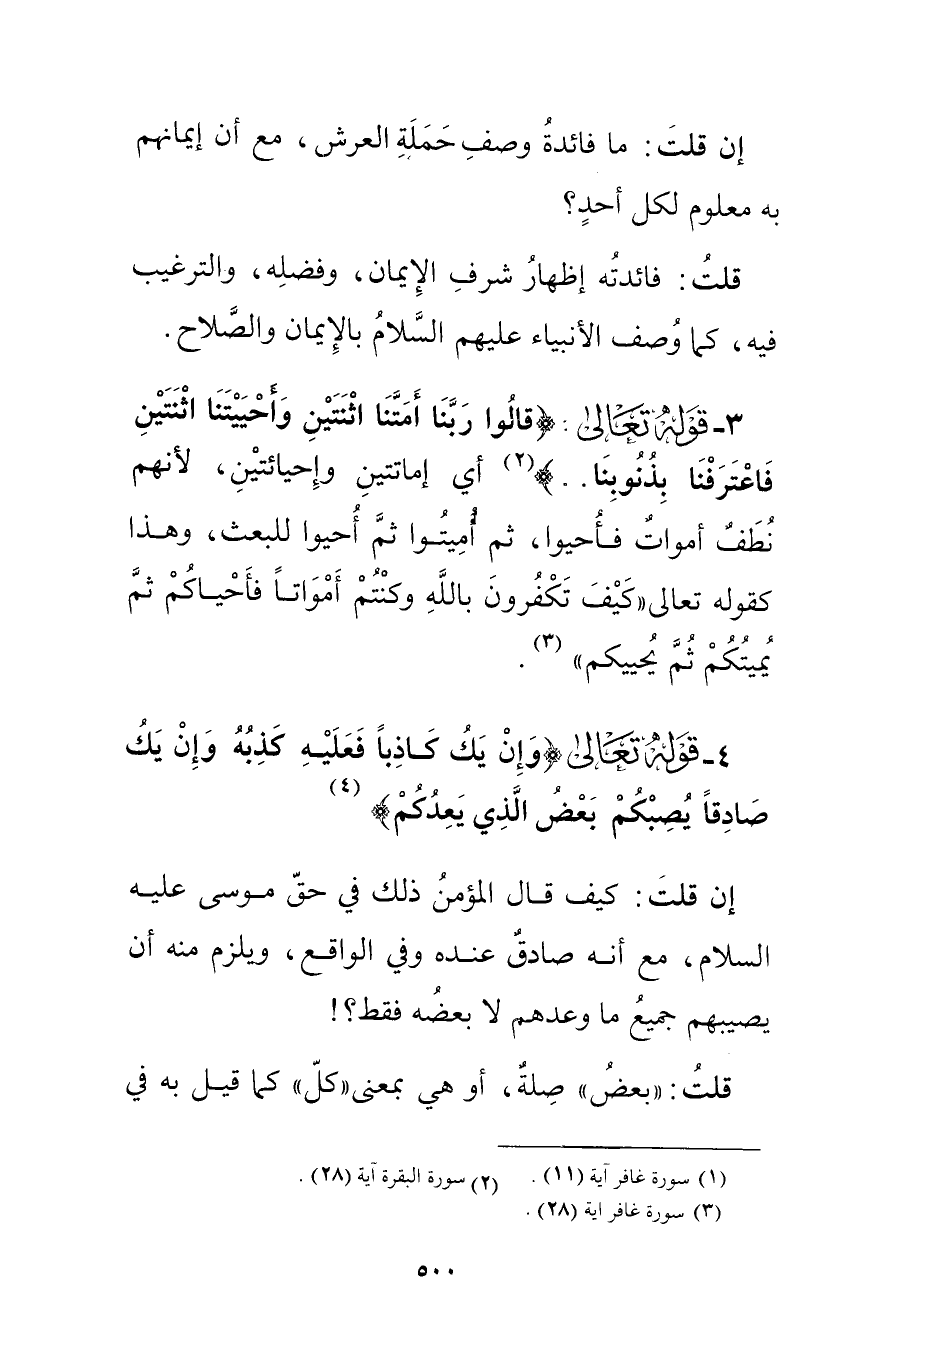 إن قلتَ: ما فائدةُ وصفِ حَمَلَةِ العرش، مع أن إيمانهم
به معلوم لكل أحدٍ؟
قلتُ: فائدتُه إظهارُ شرفِ الإِيمان، وفضلِه، والترغيب
فيه، كما وُصف الأنبياء عليهم السَّلامُ بالإِيمان والصَّلاح.
٣ـ قَوْلُهُ تَعَالَىٰ: ﴿قالُوا رَبَّنَا أَمَتَّنَا اثْنَتَيْنِ وَأَحْيَيْتَنَا اثْنَتَيْنِ
فَاعْتَرَفْنَا بِذُنُوبِنَا. .﴾(٢) أي إماتتينِ وإحيائتيْنِ، لأنهم
نُطَفٌ أمواتٌ فأُحيوا، ثم أُمِيتُوا ثمَّ أُحيوا للبعث، وهذا
كقوله تعالى«كَيْفَ تَكْفُرونَ باللَّهِ وكنْتُمْ أَمْوَاتاً فأَحْياكُمْ ثمَّ
يُميتُكُمْ ثُمَّ يُحييكم» (٣).
٤ـ قَوْلُهُ تَعَالَىٰ ﴿وَإِنْ يَكُ كَاذِباً فَعَلَيْهِ كَذِبُهُ وَإِنْ يَكُ
صَادِقاً يُصِبْكُمْ بَعْضُ الَّذِي يَعِدُكُمْ﴾ (٤)
إن قلتَ: كيف قال المؤمنُ ذلك في حقّ موسى عليه
السلام، مع أنه صادقٌ عنده وفي الواقع، ويلزم منه أن
يصيبهم جميعُ ما وعدهم لا بعضُه فقط؟!
قلتُ: «بعضُ» صِلةٌ، أو هي بمعنى«كلّ» كما قيل به في
(١) سورة غافر آية (١١). (٢) سورة البقرة آية (٢٨).
(٣) سورة غافر اية (٢٨).
٥٠٠